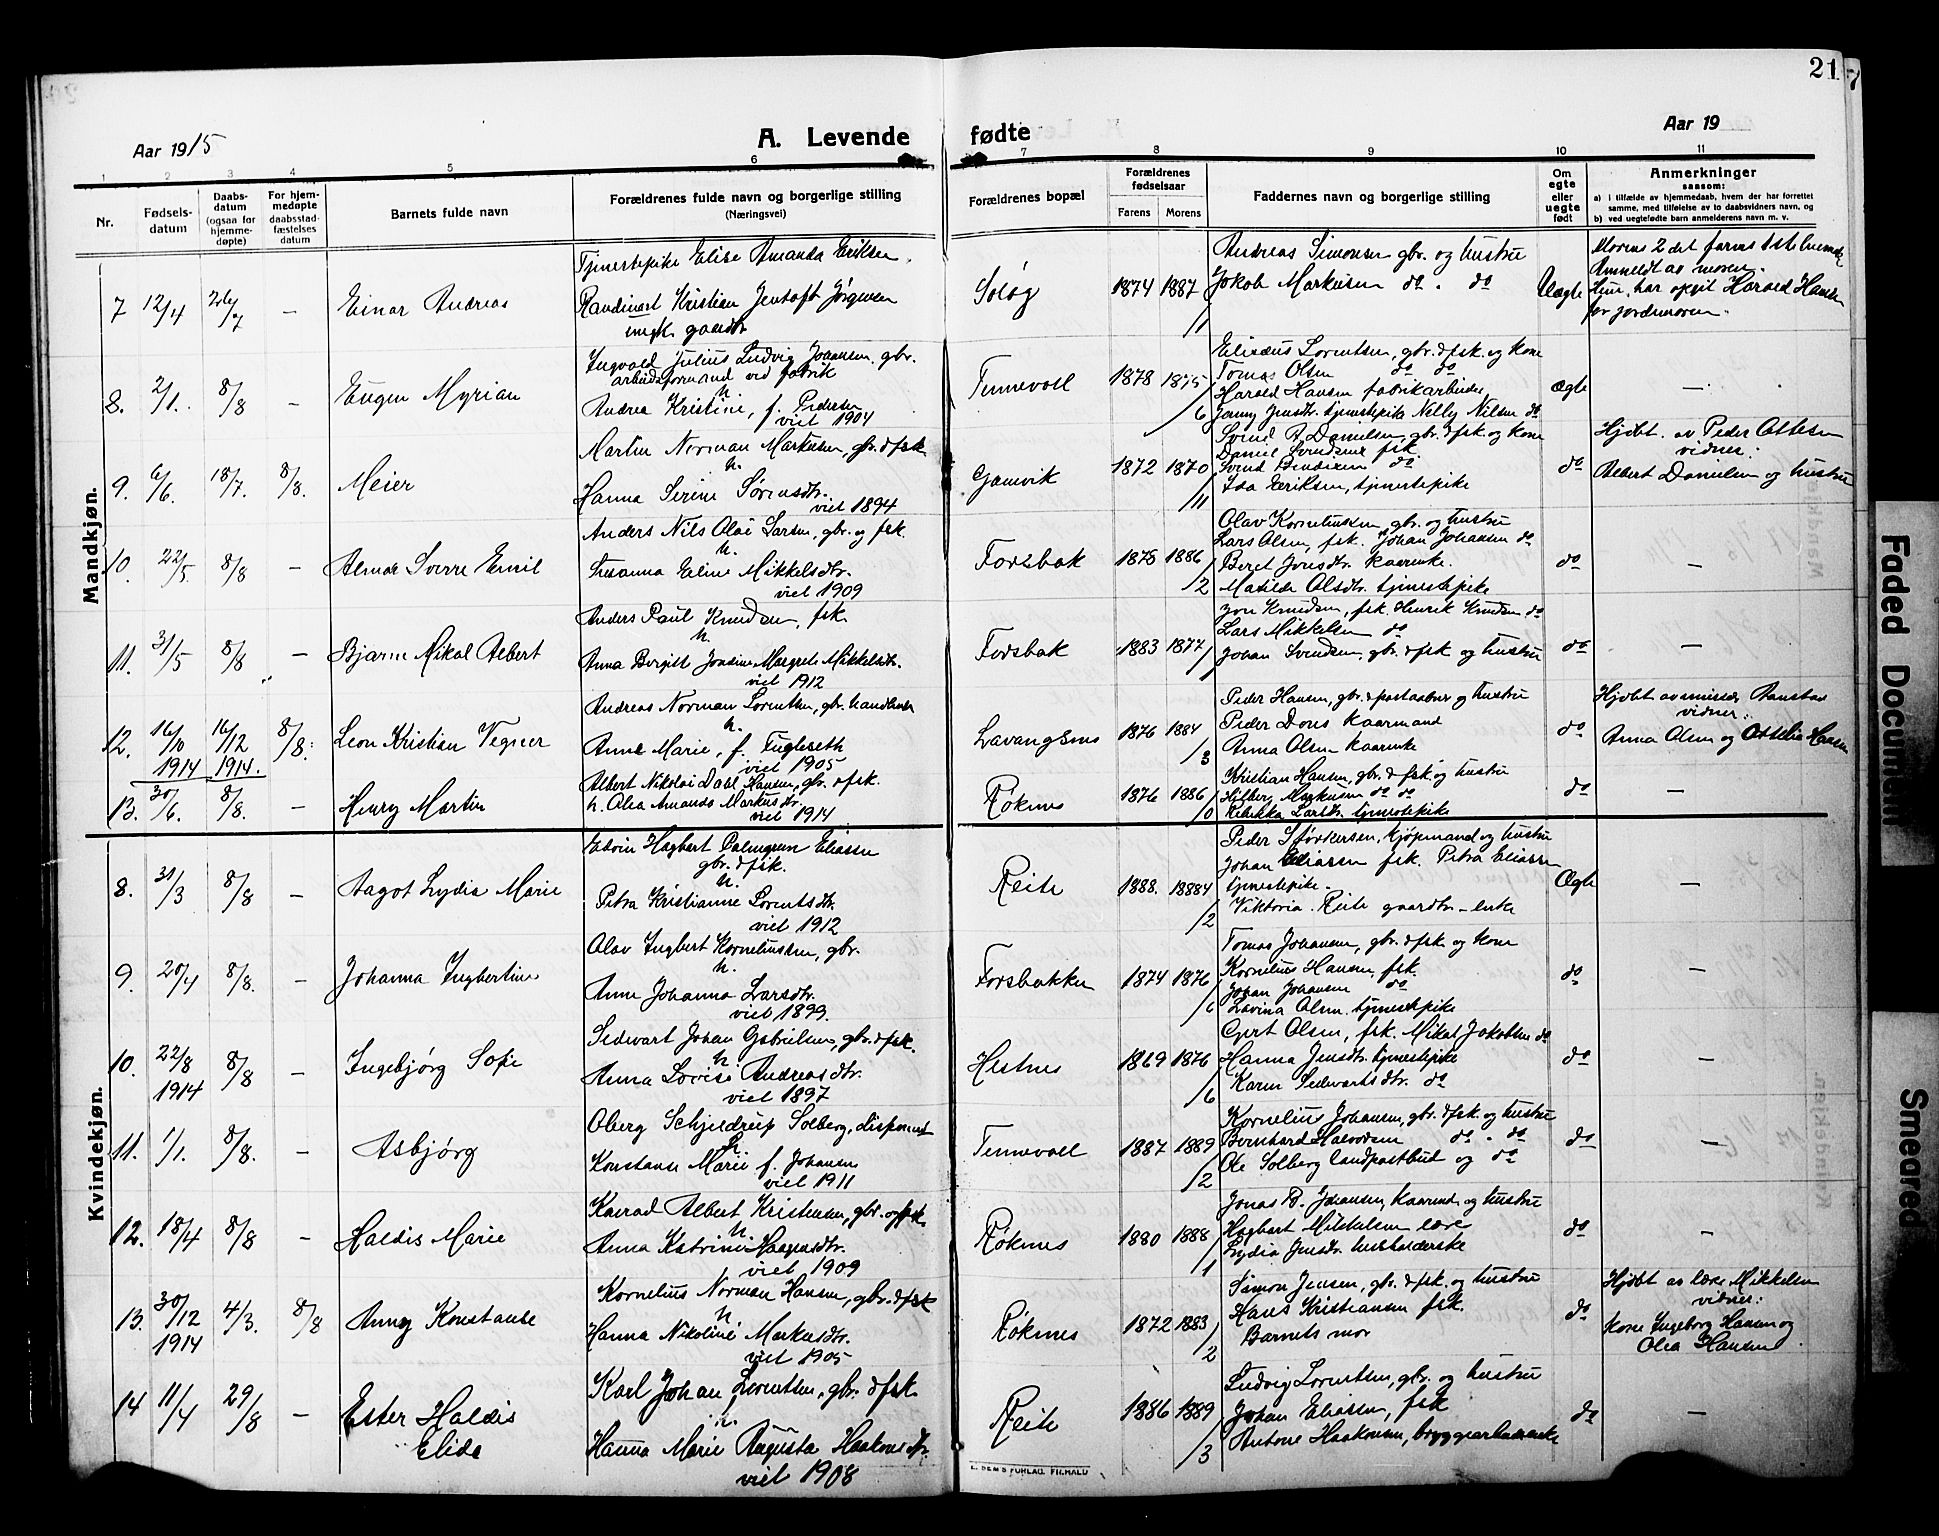 21
7
Aar 1915
A. Levende fødte
Aar 19
1 2 3 4 5 6 7 8 9 10 11
Nr.
Fødsels-
datum
Daabs-
datum
(ogsaa for
hjemme-
døpte)
For hjem-
medøpte
daabsstad-
fæstelses
datum
Barnets fulde navn
Forældrenes fulde navn og borgerlige stilling
(Næringsvei)
Forældrenes bopæl
Forældrenes
fødselsaar
Farens Morens
Faddernes navn og borgerlige stilling
Om
egte
eller
uegte
født
Anmerkninger
saasom:
a) i tilfælde av hjemmedaab, hvem der har forrettet
samme, med tilføielse av to daabsvidners navn, og
b) ved uegtefødte barn anmelderens navn m. v.
Mandkjøn.
7 12/4 26/7 – Einar Andreas
Tjenestepike Elise Amanda Eriksen.
Randinart Kristian Jentoft Jørgensen
ungk. gaardbr
Soløg 1874 1887/1
Andreas Simonsen gbr. og hustru
Jakob Markussen do. do
Uægte
Morens 2det farens 1ste
Anmeldt av moren.
Hun har opgit Harald Hansen
for jordmoren.
8. 2/1. 8/8 – Eugen Myrian
Ingvald Julius Ludvig Johansen. gbr.
arbeidsformand ved fabrik
h.
Andrea Kristine, f. Pedersen
viet 1904
Tennevoll 1878 1875/6
Elisæus Lorentsen, gbr. & fsk. og kone
Tomas Olsen do do
Harald Hansen fabrikarbeider
Jenny Jensdtr. tjenestepike Nelly Nilsen do
Ægte –
9. 6/6. 18/7. 8/8. Meier
Martin Norman Markussen, gbr. & fsk.
h.
Hanna Serine Sørensdtr.
viet 1894
Gamvik 1872 1870/11
Svend A Danielsen, gbr. & fsk. og kone
Daniel Svendsen fsk.
Svend Bendixen do
Ida Eriksen, tjenestepike
do
Hjdbt. av Peder Ottesen
vidner:
Albert Danielsen og hustru
10. 22/5 8/8 – Almar Sverre Emil
Anders Nils Olai Larsen, gbr. og fsk.
h.
Susanna Eline Mikkelsdtr.
viet 1909
Forsbak 1875 1886/2
Olav Korneliussen gbr. og hustru
Lars Olsen, fsk. Johan Johansen do
Beret Jonsdtr. kaarenke.
Matilde Olsdtr. tjenestepike
do –
11. 31/5 8/8 – Bjarne Mikal Albert
Anders Paul Knudsen, fsk.
h.
Anna Bergitt Josine Margrete Mikkelsdtr.
viet 1912
Forsbak 1883 1877/1
Jon Knudsen, fsk. Henrik Knudsen do
Lars Mikkelsen do
Johan Svendsen, gbr. & fsk og hustru
do –
12. 16/10 1914 16/12 1914. 8/8. Leon Kristian Vegner
Andreas Norman Lorentsen, gbr. handlende
h.
Anna Marie, f. Fugleseth
viet 1905
Lavangsnes 1876 1884/3
Peder Hansen, gbr. & postaabner og hustru
Peder Dons kaarmand
Anna Olsen kaarenke
do
Hjdbt av
vidner:
Anna Olsen og Ottelie Hansen
13. 30/6. 8/8. – Henry Martin
Albert Nikolai Dahl Hansen, gbr. & fsk.
h. Olea Amanda Markusdtr.
viet 1914
Røknes 1876 1886/10
Kristian Hansen, gbr. & fsk. og hustru
Hilberg Markussen do do
Rebekka Larsdtr. tjenestepike
do –
Kvindekjøn.
8. 31/3 8/8 – Aagot Lydia Marie
Edvin Hagbert Palmgren Eliassen
gbr. & fsk.
h.
Petra Kristianne Lorentsdtr.
viet 1912
Reite 1888. 1884/2
Peder Størkersen, kjøpmand og hustru
Johan Eliassen fsk. Petra Eliassen
tjenestepike.
Viktoria Reite gaardbr-enke
Ægte –
9. 20/4 8/8. – Johanna Ingbertine
Olav Ingbert Korneliussen, gbr.
h.
Anne Johanna Larsdtr.
viet 1899.
Forsbakken 1874 1876/6
Tomas Johansen, gbr. & fsk. og kone
Kornelius Hansen, fsk.
Johan Johansen do
Lavina Olsen. tjenestepike
do –
10. 22/8 1914 8/8 – Ingebjørg Sofie
Sedevart Johan Gabrielsen, gbr. & fsk.
h
Anna Lovise Andreasdtr.
viet 1897
Hestnes 1869 1876/6
Gjert Olsen, fsk. Mikal Jakobsen do
Hanna Jensdtr. tjenestepike
Karen Sedevartsdtr. do
do –
11. 1/1. 8/8. – Asbjørg
Oberg Schjeldrup Solberg, disponent
h.
Konstanse Marie f. Johansen
viet 1911
Tennevoll 1887 1889/2
Kornelius Johansen, gbr. & fsk. og hustru
Bernhard Halvorsen do. do
Ole Solberg landpostbud og do
do –
12. 18/4 8/8 – Haldis Marie
Konrad Albert Kristensen, gbr. og fsk.
h.
Anna Katrine Haagensdtr.
viet 1909
Røknes 1880 1888/1
Jonas B. Johansen, kaarmand og hustru
Hagbart Mikkelsen lære
Lydia Jensdtr. husholderske
do –
13. 30/12 1914 4/3. 8/8 Anny Konstanse
Kornelius Norman Hansen, gbr. & fsk
h.
Hanna Nikoline Markusdtr.
viet 1905
Røknes 1872 1883/2
Simon Jensen, gbr. & fsk. og hustru
Hans Kristiansen fsk.
Barnets mor
do
Hjdbt av lære Mikkelsen
vidner:
Kone Ingeborg Hansen og
Olea Hansen
14 11/4 29/8 – Ester Haldis
Elida
Karl Johan Lorentsen, gbr. & fsk.
h.
Hanna Marie Augusta Haakonsdtr.
viet 1908
Reite 1886 1889/3
Ludvig Lorentsen, gbr. og hustru
Johan Eliassen, fsk
Antone Haakonsen, bryggearbeiderske
do –
E. SEM'S FORLAG. FR.HALD
Faded Document
Smeared